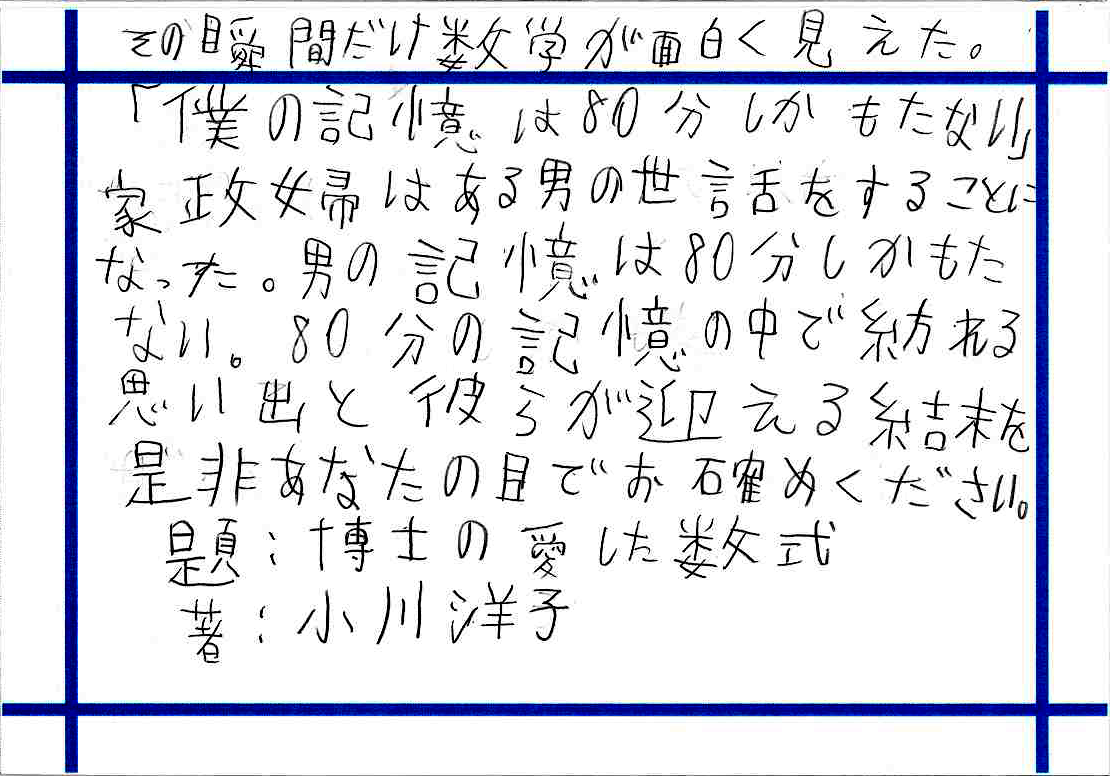 その瞬間だけ数学が面白く見えた。
「僕の記憶は80分しかもたない」
家政女帚はある男の世話をすることに
なった。男の記憶は80分しかもた
ない。80分の記憶の中で紡れる
思い出と彼らが迎える結末を
是非あなたの目でお確めください。
題:博士の愛した数式
著:小川洋子